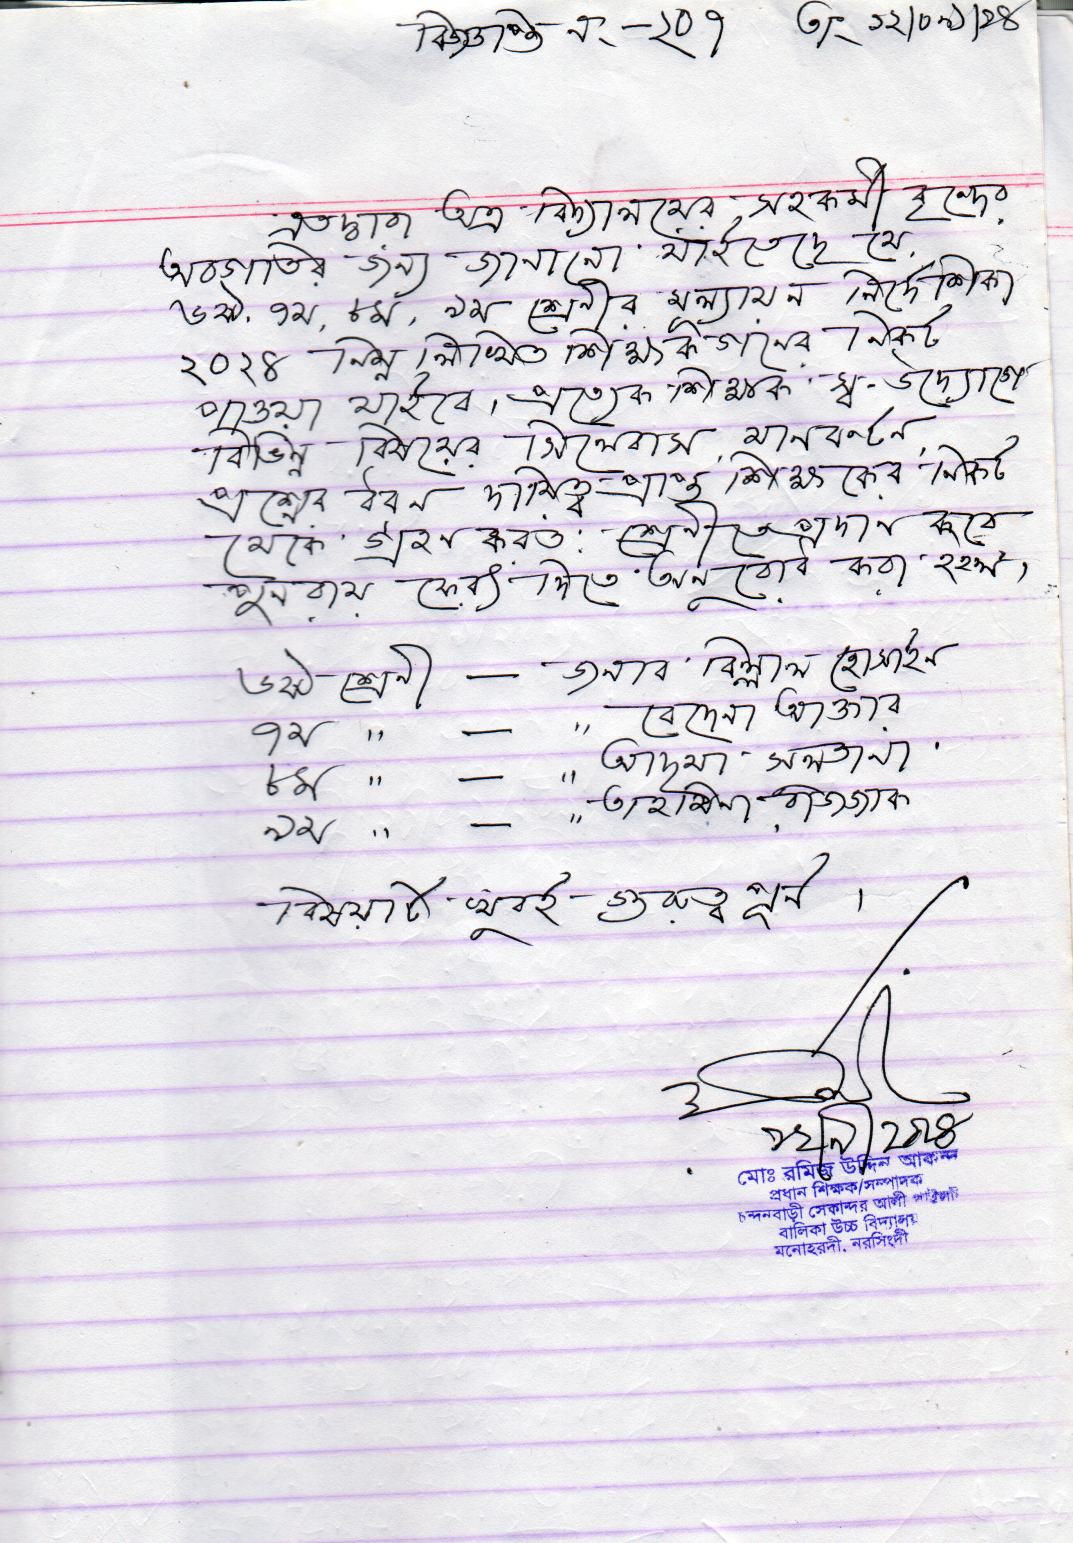 বিজ্ঞপ্তি নং -২০৭ তাং ১২/০৯/২৪
এতদ্বারা অত্র বিদ্যালয়ের সহকর্মী বৃন্দের
অবগতির জন্য জানানো যাইতেছে যে,
৬ষ্ঠ, ৭ম, ৮ম, ৯ম শ্রেনীর মূল্যায়ন নির্দেশিকা
২০২৪ নিম্ন লিখিত শিক্ষকগনের নিকট
পাওয়া যাইবে। প্রত্যেক শিক্ষক স্ব-উদ্যোগে
বিভিন্ন বিষয়ের সিলেবাস, মানবন্টন,
প্রশ্নের ধরন দায়িত্ব প্রাপ্ত শিক্ষকের নিকট
থেকে গ্রহন করত: শ্রেনীতে প্রদান করে
পুনরায় ফেরৎ দিতে অনুরোধ করা হইল।
৬ষ্ঠ শ্রেনী — জনাব বিল্লাল হোসাইন
৭ম " — " বেদেনা আক্তার
৮ম " — " সলতানা
৯ম " — " তাহমিনা রাজ্জাক
বিষয়টি খুবই গুরুত্ব পূর্ন।
মোঃ রমিজ উদ্দিন আকন্দ
প্রধান শিক্ষক/সম্পাদক
চন্দনবাড়ী সেকান্দর আলী পাইলট
বালিকা উচ্চ বিদ্যালয়
মনোহরদী, নরসিংদী